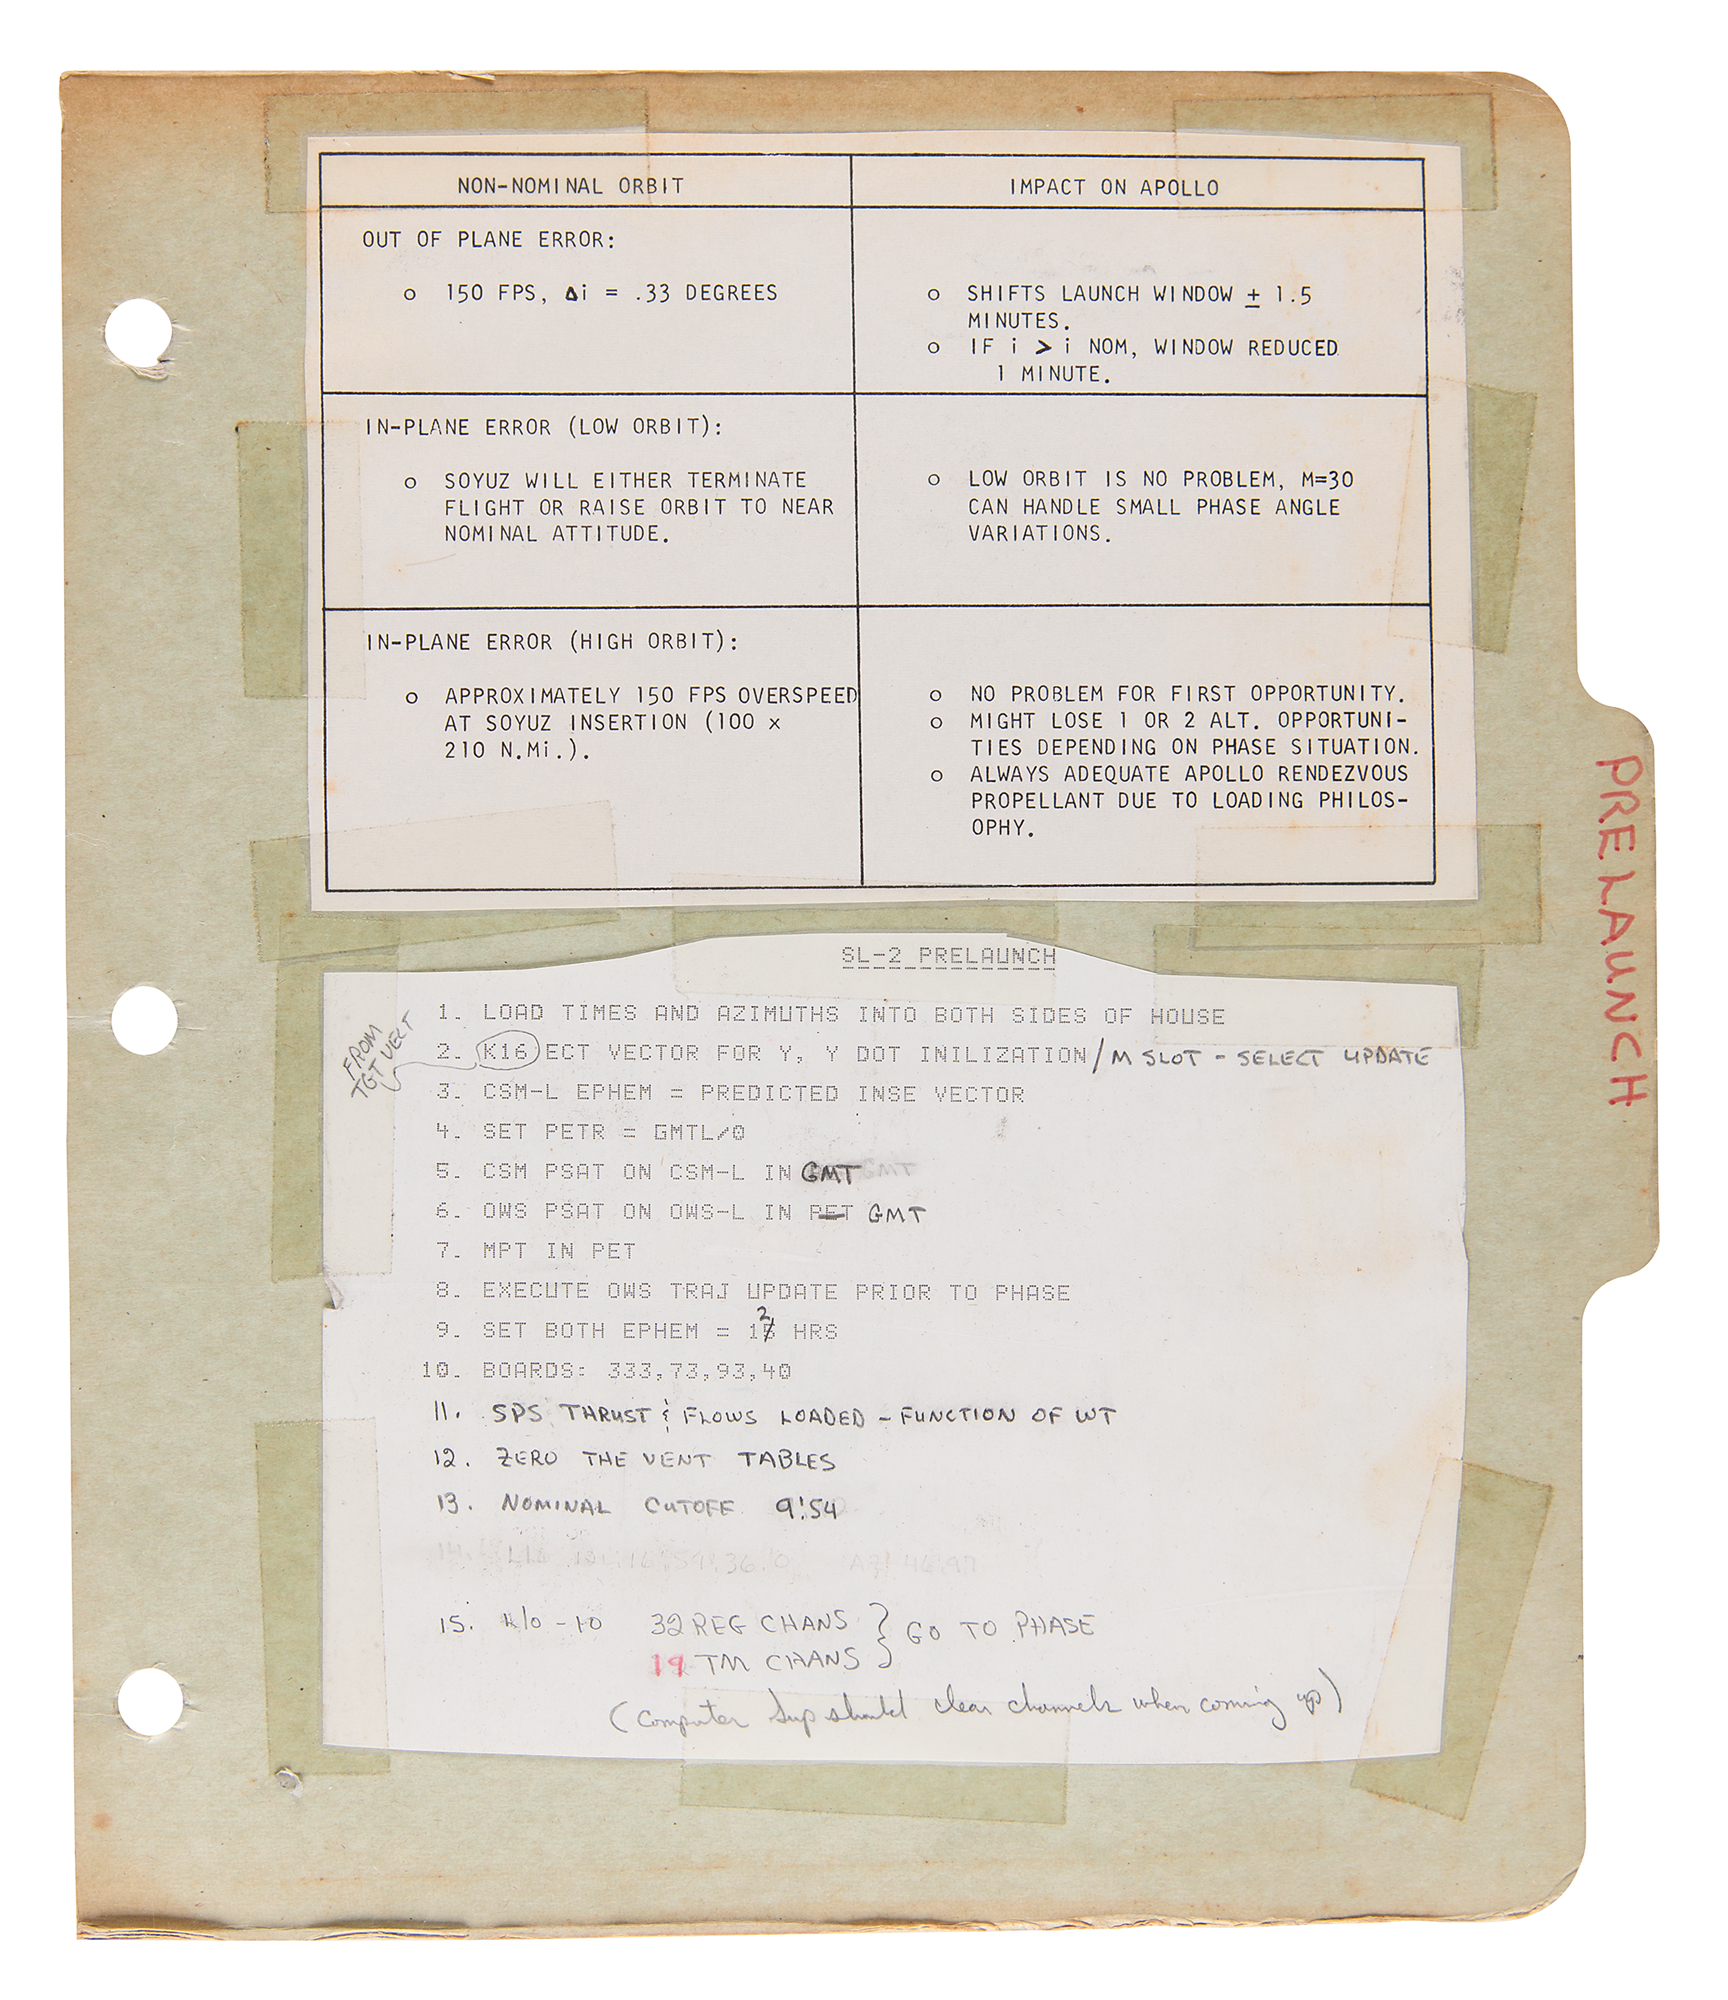 NON-NOMINAL ORBIT
IMPACT ON APOLLO
OUT OF PLANE ERROR:
o 150 FPS, Δi = .33 DEGREES
o SHIFTS LAUNCH WINDOW ± 1.5
MINUTES.
o IF i > i NOM, WINDOW REDUCED
1 MINUTE.
IN-PLANE ERROR (LOW ORBIT):
o SOYUZ WILL EITHER TERMINATE
FLIGHT OR RAISE ORBIT TO NEAR
NOMINAL ATTITUDE.
o LOW ORBIT IS NO PROBLEM, M=30
CAN HANDLE SMALL PHASE ANGLE
VARIATIONS.
IN-PLANE ERROR (HIGH ORBIT):
o APPROXIMATELY 150 FPS OVERSPEED
AT SOYUZ INSERTION (100 x
210 N.Mi.).
o NO PROBLEM FOR FIRST OPPORTUNITY.
o MIGHT LOSE 1 OR 2 ALT. OPPORTUNI-
TIES DEPENDING ON PHASE SITUATION.
o ALWAYS ADEQUATE APOLLO RENDEZVOUS
PROPELLANT DUE TO LOADING PHILOS-
OPHY.
PRELAUNCH
SL-2 PRELAUNCH
1. LOAD TIMES AND AZIMUTHS INTO BOTH SIDES OF HOUSE
FROM
TGT VECT
2. K16 ECT VECTOR FOR Y, Y DOT INILIZATION / M SLOT - SELECT UPDATE
3. CSM-L EPHEM = PREDICTED INSE VECTOR
4. SET PETR = GMTL/0
5. CSM PSAT ON CSM-L IN GMT
6. OWS PSAT ON OWS-L IN PET GMT
7. MPT IN PET
8. EXECUTE OWS TRAJ UPDATE PRIOR TO PHASE
9. SET BOTH EPHEM = 12 HRS
10. BOARDS: 333,73,93,40
11. SPS THRUST & FLOWS LOADED - FUNCTION OF WT
12. ZERO THE VENT TABLES
13. NOMINAL CUTOFF 9:54
14.
15. -10 32 REG CHANS } GO TO PHASE
19 TM CHANS
(Computer Sup should clear channels when coming up)